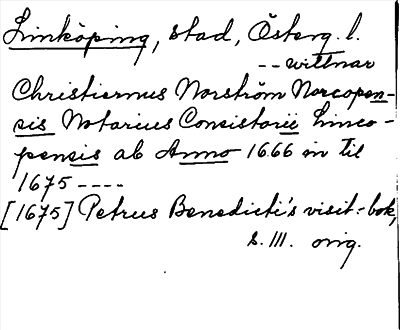 Linköping, stad, Österg. l.
-- wittnar
Christiernus Norström Norcopen-
sis Notarius Consistorii Linco-
pensis ab Anno 1666 in til
1675 ----
[1675] Petrus Benedicti's visit.-bok,
s. 111. orig.